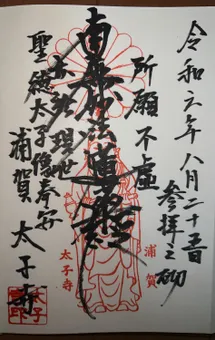 令和六年八月二十五日
参拝之砌
所願不虚
南無妙法蓮華経
亦於現世
聖徳太子像奉安
浦賀 太子寺
浦賀
太子寺